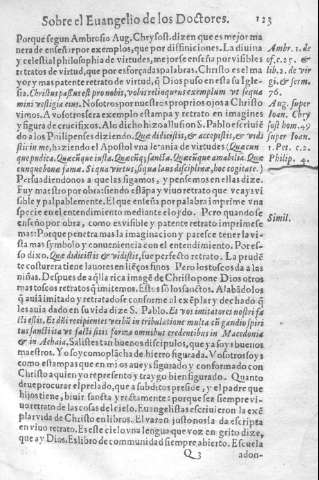 Sobre el Euangelio de los Doctores. 123
Porque segun Ambrosio Aug. Chrysost. dizen que es mejor ma
nera de enseñar por exemplos, que por diffiniciones. La diuina
y celestial philosophia de virtudes, mejor se enseña por visibles
retratos de virtud, que por esforçadas palabras. Christo es el ma
yor y mas patente retrato de virtud, q̃ Dios puso en esta su Igle-
sia. Christus passus est pro nobis, vobis relinquens exemplum vt sequa
mini vestigia eius. Nosotros por nuestros proprios ojos a Christo
vimos. A vosotros sera exemplo estampa y retrato en imagines
y figura de crucifixos. A lo dicho hizo allusion S. Pablo escriuiẽ
do a los Philipenses diziendo. Quæ didicistis, & accepistis, & vidi
stis in me, haziendo el Apostol vna letania de virtudes: Quæcun
que pudica. Quæcũque iusta. Quæcũq; sancta. Quæcũque amabilia. Quæ
cunque bonæ famæ. Si qua virtus, si qua laus disciplinæ, hæc cogitate.
Persuadiendonos a que las sigamos, y pensemos en ellas dize.
Fuy maestro por obra: siendo estãpa y viuo retrato que veays vi
sible y palpablemente. El que enseña por palabra imprime vna
specie en el entendimiento mediante el oydo. Pero quando se
enseña por obra, como es visible y patente retrato imprimese
mas: Porque penetra mas la imaginacion y parece tener la vi-
sta mas symbolo y conueniencia con el entendimiento. Por es-
so dixo. Quæ didicistis & vidistis, fue perfecto retrato. La prudẽ
te costurera tiene lauores en liẽços finos Pero los toscos da a las
niñas. Despues de aq̃lla rica imagẽ de Christo pone Dios otros
mas toscos retratos q̃ imitemos. Estos sõ los sanctos. Alabãdo los
q̃ auiã imitado y retratadose conforme al exẽplar y dechado q̃
les auia dado en su vida dize S. Pablo. Et vos imitatores nostri fa
cti estis, Et dñi excipientes verbũ in tribulatione multa cũ gaudio spiri
tus sancti ita vt facti sitis forma omnibus credentibus in Macedonia
& in Achaia. Salistes tan buenos discipulos, que ya soys buenos
maestros. Yo soy como plãcha de hierro figurada. Vosotros soys
como estampas que en mi os aueys figurado y conformado con
Christo a quien yo represento y traygo bien figurado. Quanto
deue procurar el prelado, que a subditos preside, y el padre que
hijos tiene, biuir sancta y rectamente: porque sea siempre vi-
uo retrato de las cosas del cielo. Euangelistas escriuieron la exẽ
plar vida de Christo en libros. El varon justo nos la da escripta
en viuo retrato. Es este cielo vna lengua que voz en grito dize,
que ay Dios. Es libro de communidad siempre abierto. Escuela
Q 3 adon-
Ambr. 1. de
of. c. 25. &
lib. 2. de vir
gi. & serm.
76.
Aug. super
Ioan. Chry
sost hom. 49
super Ioan.
1. Pet. c. 2.
Philip. 4.
Simil.